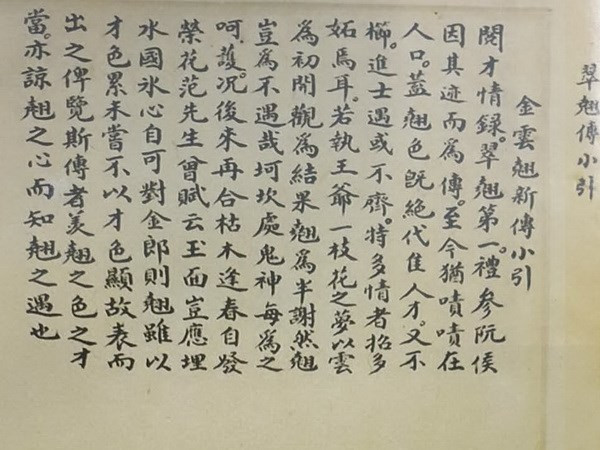 翠翹傳小引
金雲翹新傳小引
閱才情錄。翠翹第一。禮参阮侯
因其迹而為傳。至今猶嘖嘖在
人口。蓋翹色既絶代隹人才。又不
櫛。進士遇或不齊。特多情者招多
妬焉耳。若執王爺一枝花之夢以雲
為初開觀為結果翹為半謝然翹
豈為不遇哉坷坎處鬼神每為之
呵。護。况後來再合枯木逢春自發
榮花范先生曾賦云玉面豈應埋
水國氷心自可對金郎則翹雖以
才色累未嘗不以才色顯故表而
出之俾覽斯傳者羙翹之色之才
當。亦諒翹之心而知翹之遇也